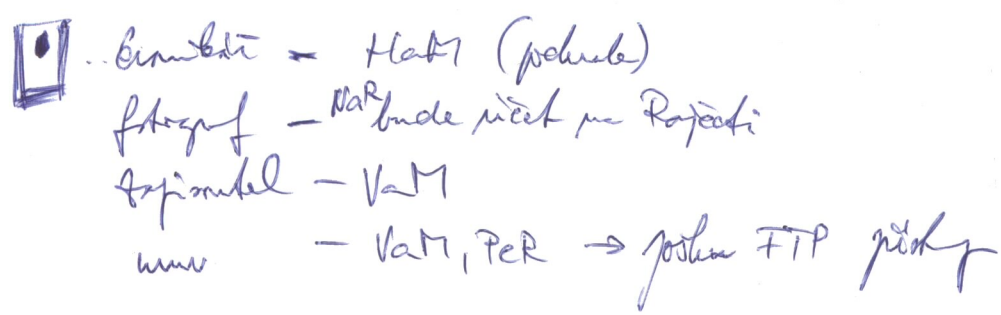 kronikář – HaM (pokurde)
fotograf – NaR bude účet na Rajčeti
zapisovatel – VaM
www – VaM, PeR → pošlu FTP přístupy